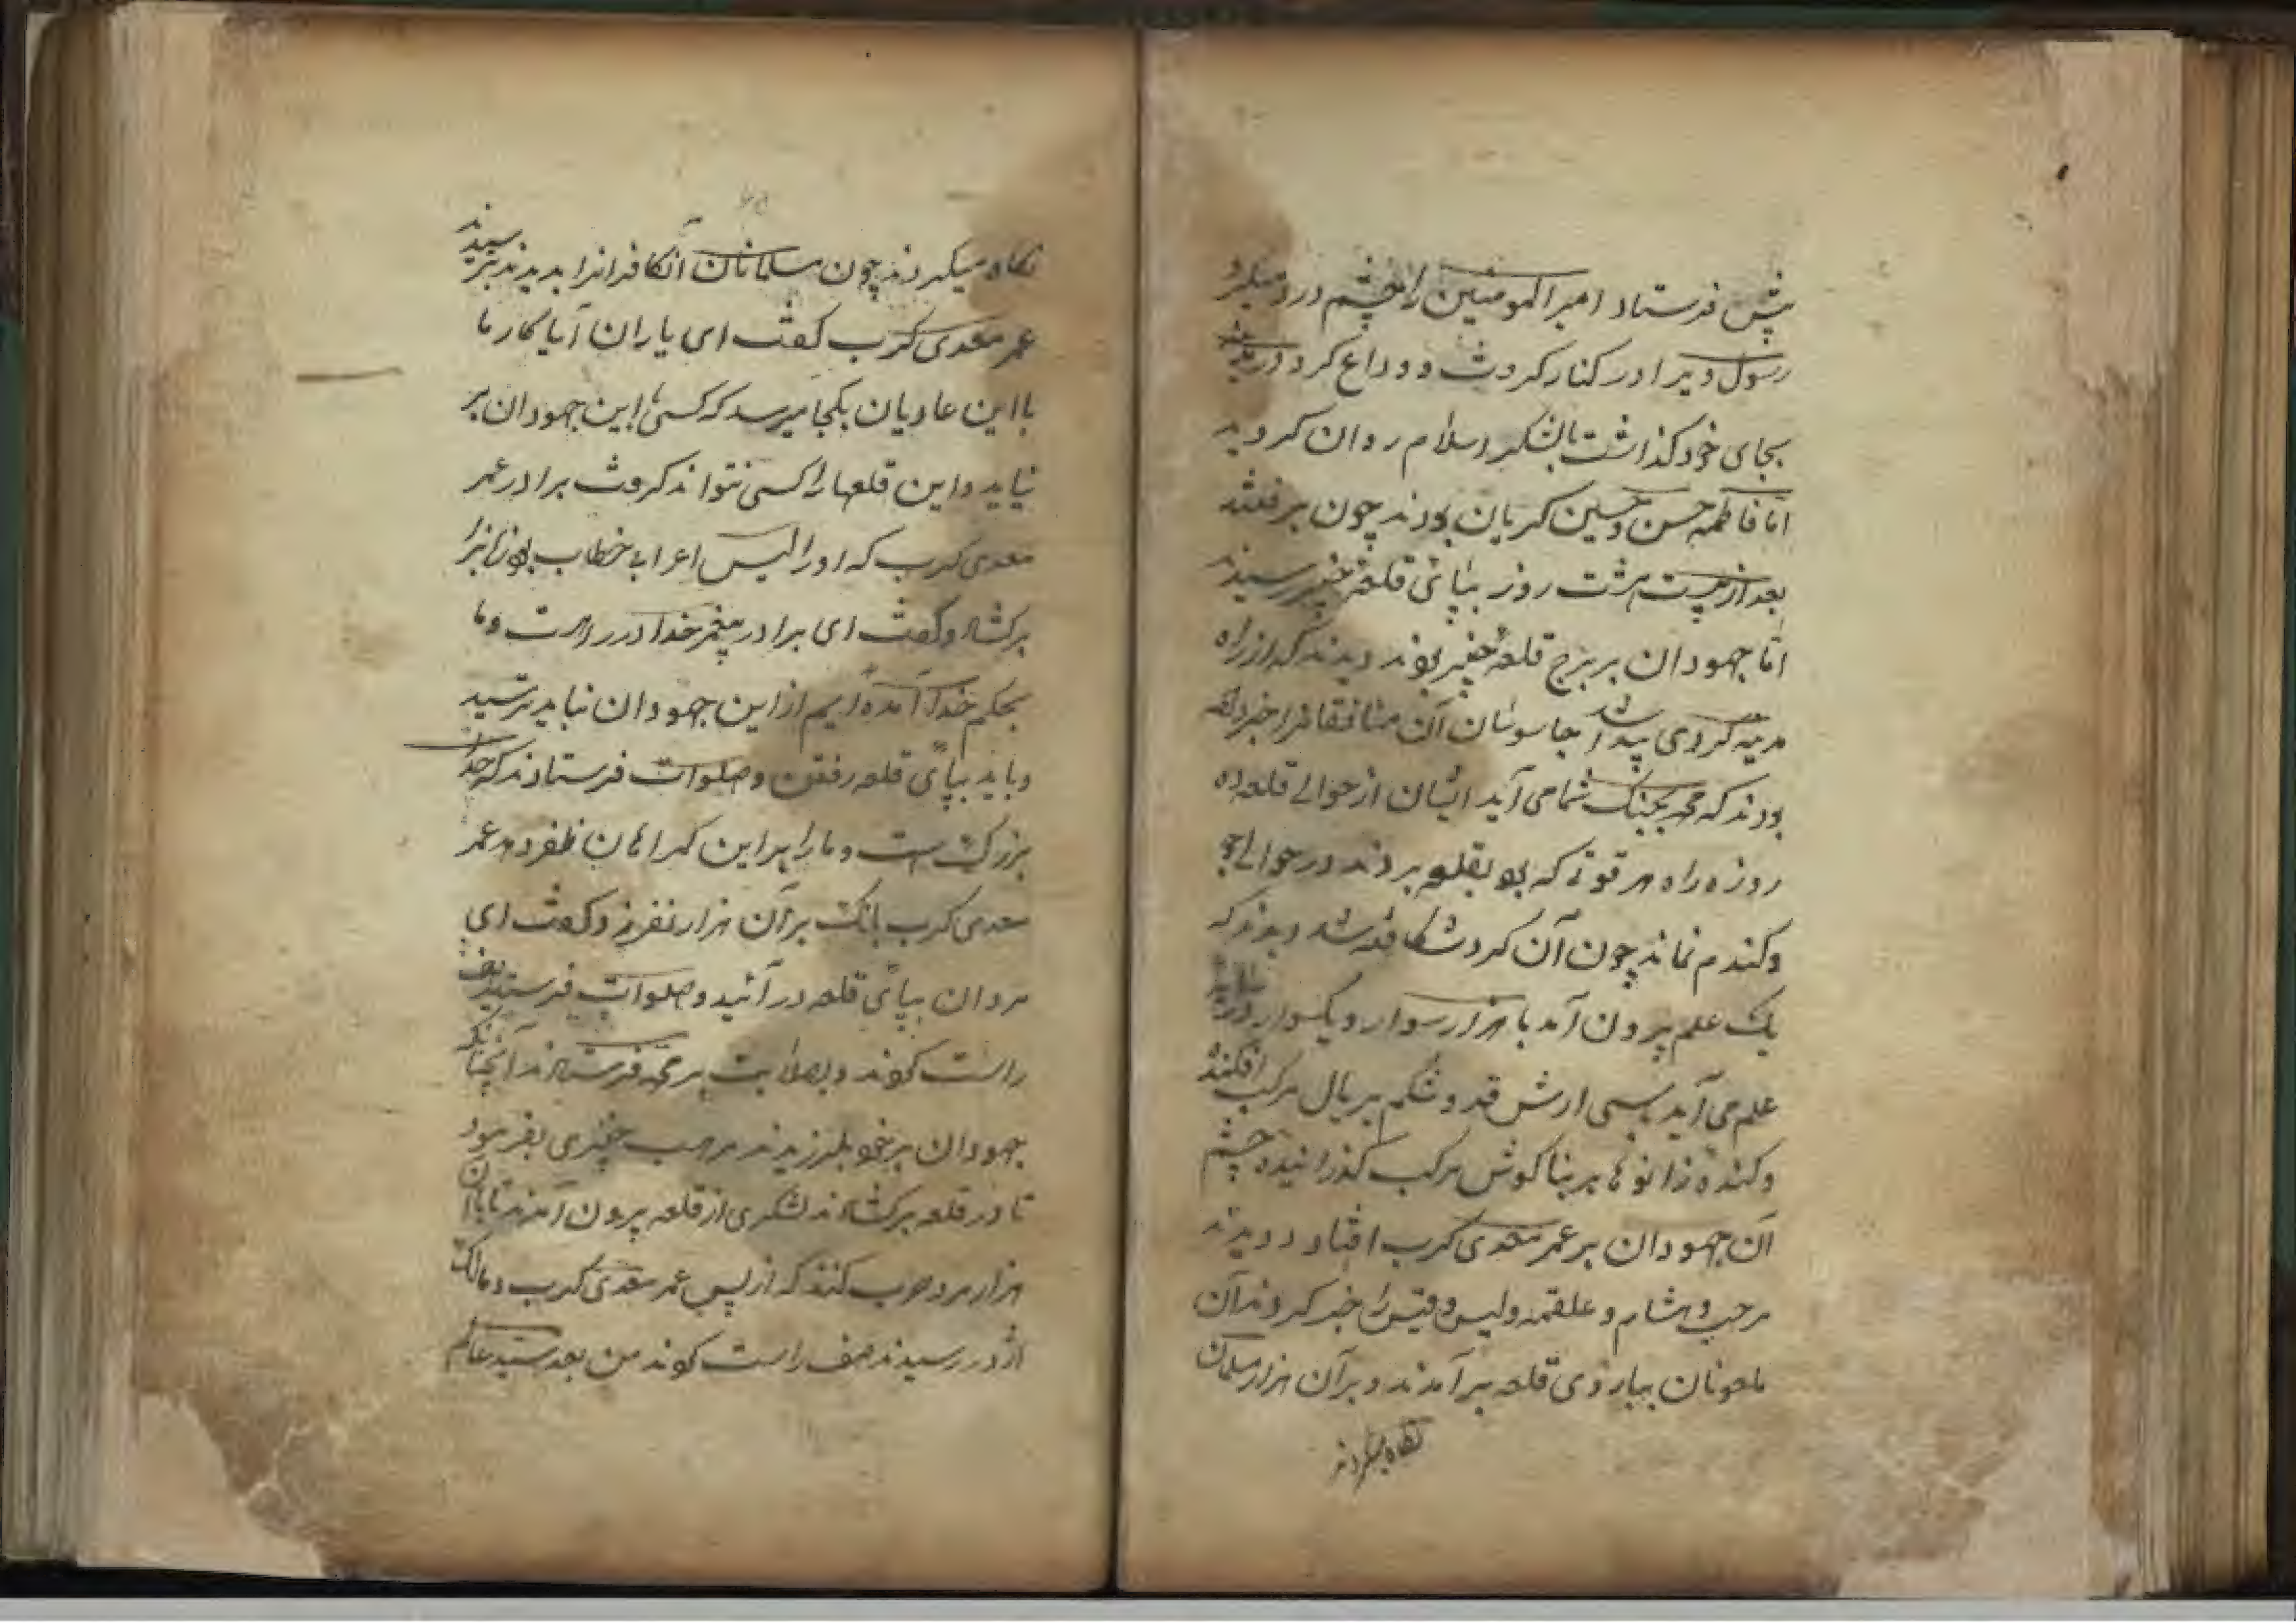 پیش فرستاد امیرالمومنین را چشم درد میکرد
رسول ویرا در کنار کرفت و وداع کرد در مدینه
بجای خود کذاشت بالشکر اسلام روان کردید
اما فاطمه حسن و حسین کریان بودند چون برفتند
بعد از بیست هشت روز بپائی قلعه خیبر رسیدند
اما جهودان بر برج قلعه خیبر بودند دیدند که از راه
مدینه کردی پیدا شد جاسوسان آن منافقانرا خبر داده
بودند که محمد بجنک شما می آید ایشان از حوالی قلعه ده
روزه راه هر قوتی که بود بقلعه بردند در حوالی جو
و کندم نماند چون آن کرد شکافته شد دیدند که
یک علم بیرون آمد با هزار سوار و یکسوار در
علم می آید بسی ارش قد و شکم بر یال مرکب افکنده
و کنده زانوها بر بناکوش مرکب کذرانیده چشم
آن جهودان بر عمر معدی کرب افتاد دویدند
مرحب و هشام و علقمه ولیس وقیس را خبر کردند آن
ملعونان ببارۀ قلعه برآمدند و بر آن هزار مسلمان
نکاه میکردند
نکاه میکردند چون مسلمانان آنکافرانرا بدیدند بترسیدند
عمر معدی کرب کفت ای یاران آیا کار ما
با این عادیان بکجا میرسد که کسی با این جهودان بر
نیاید و این قلعها را کسی نتواند کرفت برادر عمر
معدی کرب که او را لیس اعرابی خطاب بود زبانرا
برکشاد و کفت ای برادر پیغمبر خدا در راهست و ما
بحکم خدا آمده ایم از این جهودان نباید ترسید
و باید بپائی قلعه رفتن و صلوات فرستادند که خدا
بزرک است و ما را بر این کمراهان ظفر دهد عمر
معدی کرب بانک بر آن هزار نفر زد و کفت ای
مردان بپائی قلعه در آئید و صلوات فرستید صف
راست کردند و بصلابت بر محمد فرستادند آنچنانکه
جهودان بر خود بلرزیدند مرحب خیبری بفرمود
تا در قلعه برکشادند لشکری از قلعه بیرون آمدند تا با آن
هزار مرد حرب کنند که از پس عمر معدی کرب و مالک
اژدر رسیدند صف راست کردند من بعد سید عالم